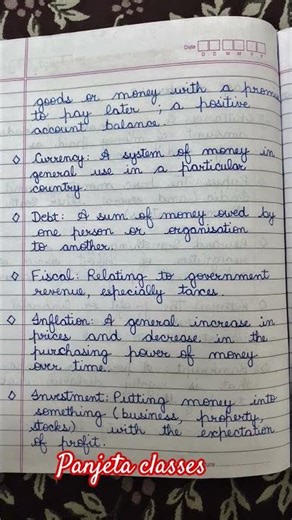 Date
D D M M Y Y
goods or money with a prom
to pay later ; a positive
account balance.
◇ Currency: A system of money in
general use in a particular
country.
◇ Debt: A sum of money owed by
one person or organisation
to another.
◇ Fiscal: Relating to government
revenue, especially taxes.
◇ Inflation: A general increase in
prices and decrease in the
purchasing power of money
over time.
◇ Investment: Putting money into
something (business, property,
stocks) with the expectation
of profit.
Panjeta classes